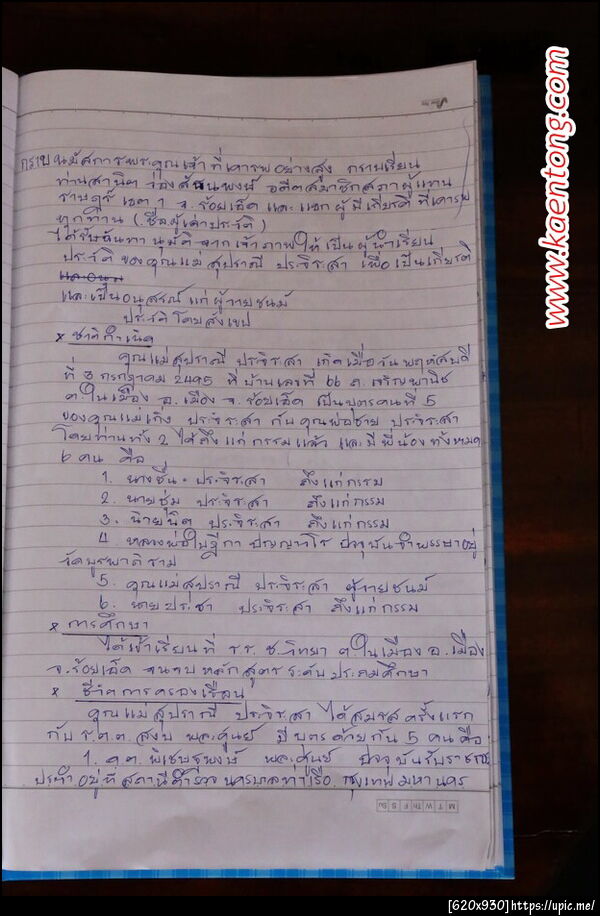 กราบนมัสการพระคุณเจ้าที่เคารพอย่างสูง กราบเรียน
ท่านสานิต ว่องสัธนพงษ์ อดีตสมาชิกสภาผู้แทน
ราษฎร์ เขต 1 จ.ร้อยเอ็ด และแขกผู้มีเกียรติ ที่เคารพ
ทุกท่าน (ชื่อผู้เล่าประวัติ)
ได้รับฉันทานุมัติจากเจ้าภาพให้เป็นผู้นำเรียน
ประวัติของคุณแม่สุปราณี ประจิระสา เพื่อเป็นเกียรติ
และเป็นอนุสรณ์แก่ผู้วายชนม์
ประวัติโดยสังเขป
× ชาติกำเนิด
คุณแม่สุปราณี ประจิระสา เกิดเมื่อวันพฤหัสบดี
ที่ 3 กรกฎาคม 2495 ที่บ้านเลขที่ 66 ถ.เจริญพานิช
ต.ในเมือง อ.เมือง จ.ร้อยเอ็ด เป็นบุตรคนที่ 5
ของคุณแม่เกิ่ง ประจิระสา กับคุณพ่อชาย ประจิระสา
โดยท่านทั้ง 2 ได้ถึงแก่กรรมแล้ว และมีพี่น้องทั้งหมด
6 คน คือ
1. นางชื่น ประจิระสา ถึงแก่กรรม
2. นายชุ่ม ประจิระสา ถึงแก่กรรม
3. นายนิต ประจิระสา ถึงแก่กรรม
4. หลวงพ่อใบฎีกา ปัญญาวโร ปัจจุบันจำพรรษาอยู่
วัดบูรพาภิราม
5. คุณแม่สุปราณี ประจิระสา ผู้วายชนม์
6. นายประชา ประจิระสา ถึงแก่กรรม
× การศึกษา
ได้เข้าเรียนที่ รร. ช.วิทยา ต.ในเมือง อ.เมือง
จ.ร้อยเอ็ด จนจบหลักสูตรระดับประถมศึกษา
× ชีวิตการครองเรือน
คุณแม่สุปราณี ประจิระสา ได้สมรสครั้งแรก
กับ ร.ต.ต. สงบ พละศูนย์ มีบุตรด้วยกัน 5 คน คือ
1. ด.ต. พิเชษฐพงษ์ พละศูนย์ ปัจจุบันรับราชการ
ประจำอยู่ที่สถานีตำรวจนครบาลท่าเรือ กรุงเทพมหานคร
M T W Th F S Su
www.kaentong.com
[620x930]https://upic.me/